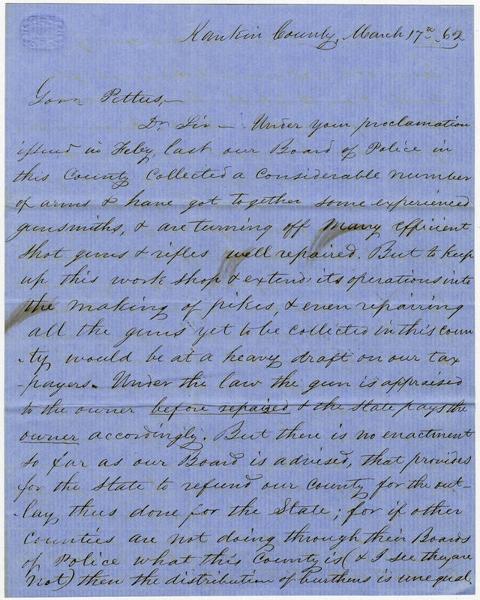 Rankin County, March 17th 62
Govr Pettus,—
Dr Sir — Under your proclamation
issued in Feby, last our Board of Police in
this County Collected a considerable number
of arms & have got together some experienced
gunsmiths, & are turning off many efficient
shot guns & rifles well repaired. But to keep
up this work shop & extend its operations into
the making of pikes, & even repairing
all the guns yet to be collected in this coun
-ty would be at a heavy draft on our tax
-payers. Under the law the gun is appraised
to the owner before repaired & the State pays the
owner accordingly. But there is no enactment
so far as our Board is advised, that provides
for the State to refund our county for the out-
-lay thus done for the State; for if other
Counties are not doing through their Boards
of Police what this County is (& I see they are
not) then the distribution of burthens is unequal.